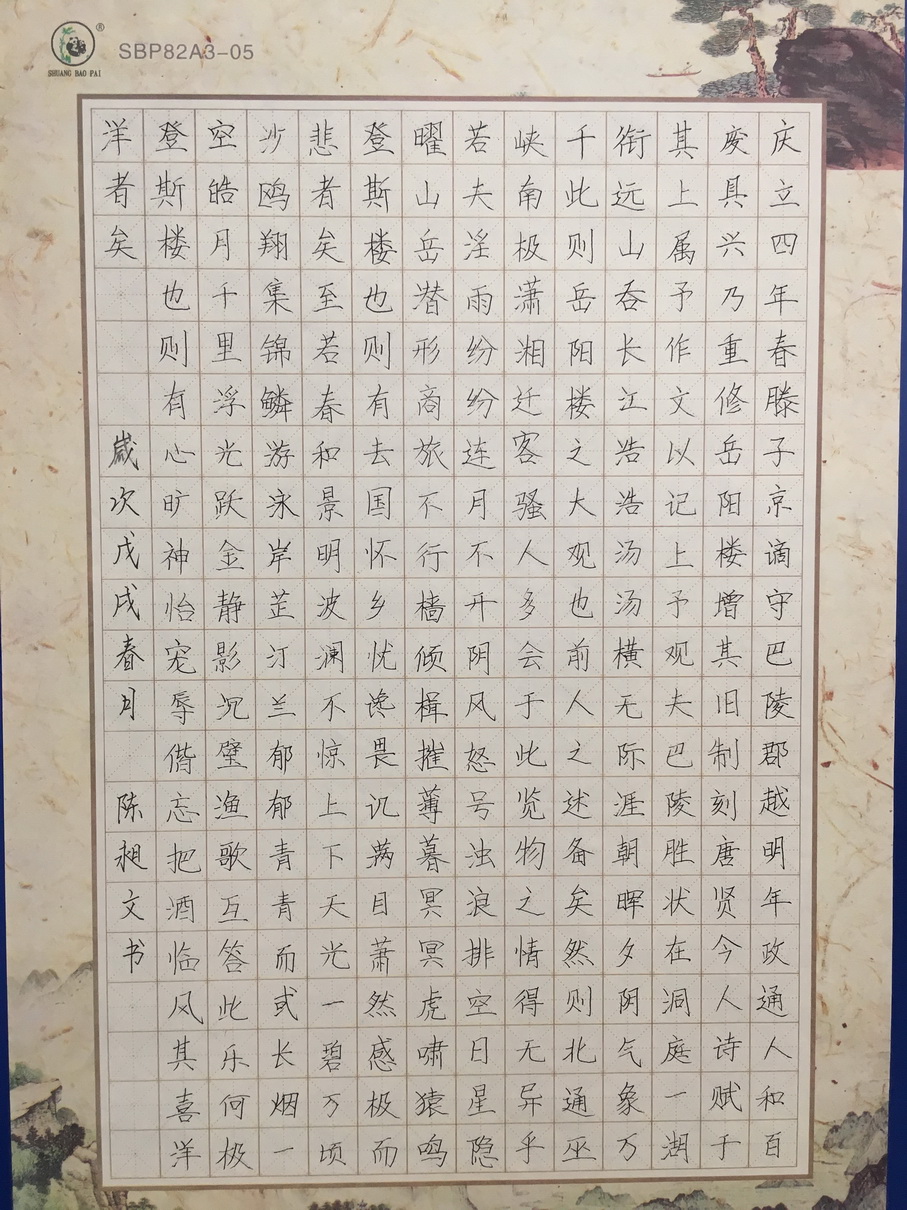 SBP82A3-05
SHUANG BAO PAI
庆立四年春滕子京谪守巴陵郡越明年政通人和百
废具兴乃重修岳阳楼增其旧制刻唐贤今人诗赋于
其上属予作文以记上予观夫巴陵胜状在洞庭一湖
衔远山吞长江浩浩汤汤横无际涯朝晖夕阴气象万
千此则岳阳楼之大观也前人之述备矣然则北通巫
峡南极潇湘迁客骚人多会于此览物之情得无异乎
若夫淫雨纷纷连月不开阴风怒号浊浪排空日星隐
曜山岳潜形商旅不行樯倾楫摧薄暮冥冥虎啸猿鸣
登斯楼也则有去国怀乡忧谗畏讥满目萧然感极而
悲者矣至若春和景明波澜不惊上下天光一碧万顷
沙鸥翔集锦鳞游泳岸芷汀兰郁郁青青而或长烟一
空皓月千里浮光跃金静影沉璧渔歌互答此乐何极
登斯楼也则有心旷神怡宠辱偕忘把酒临风其喜洋
洋者矣 歲次戊戌春月 陈昶文书